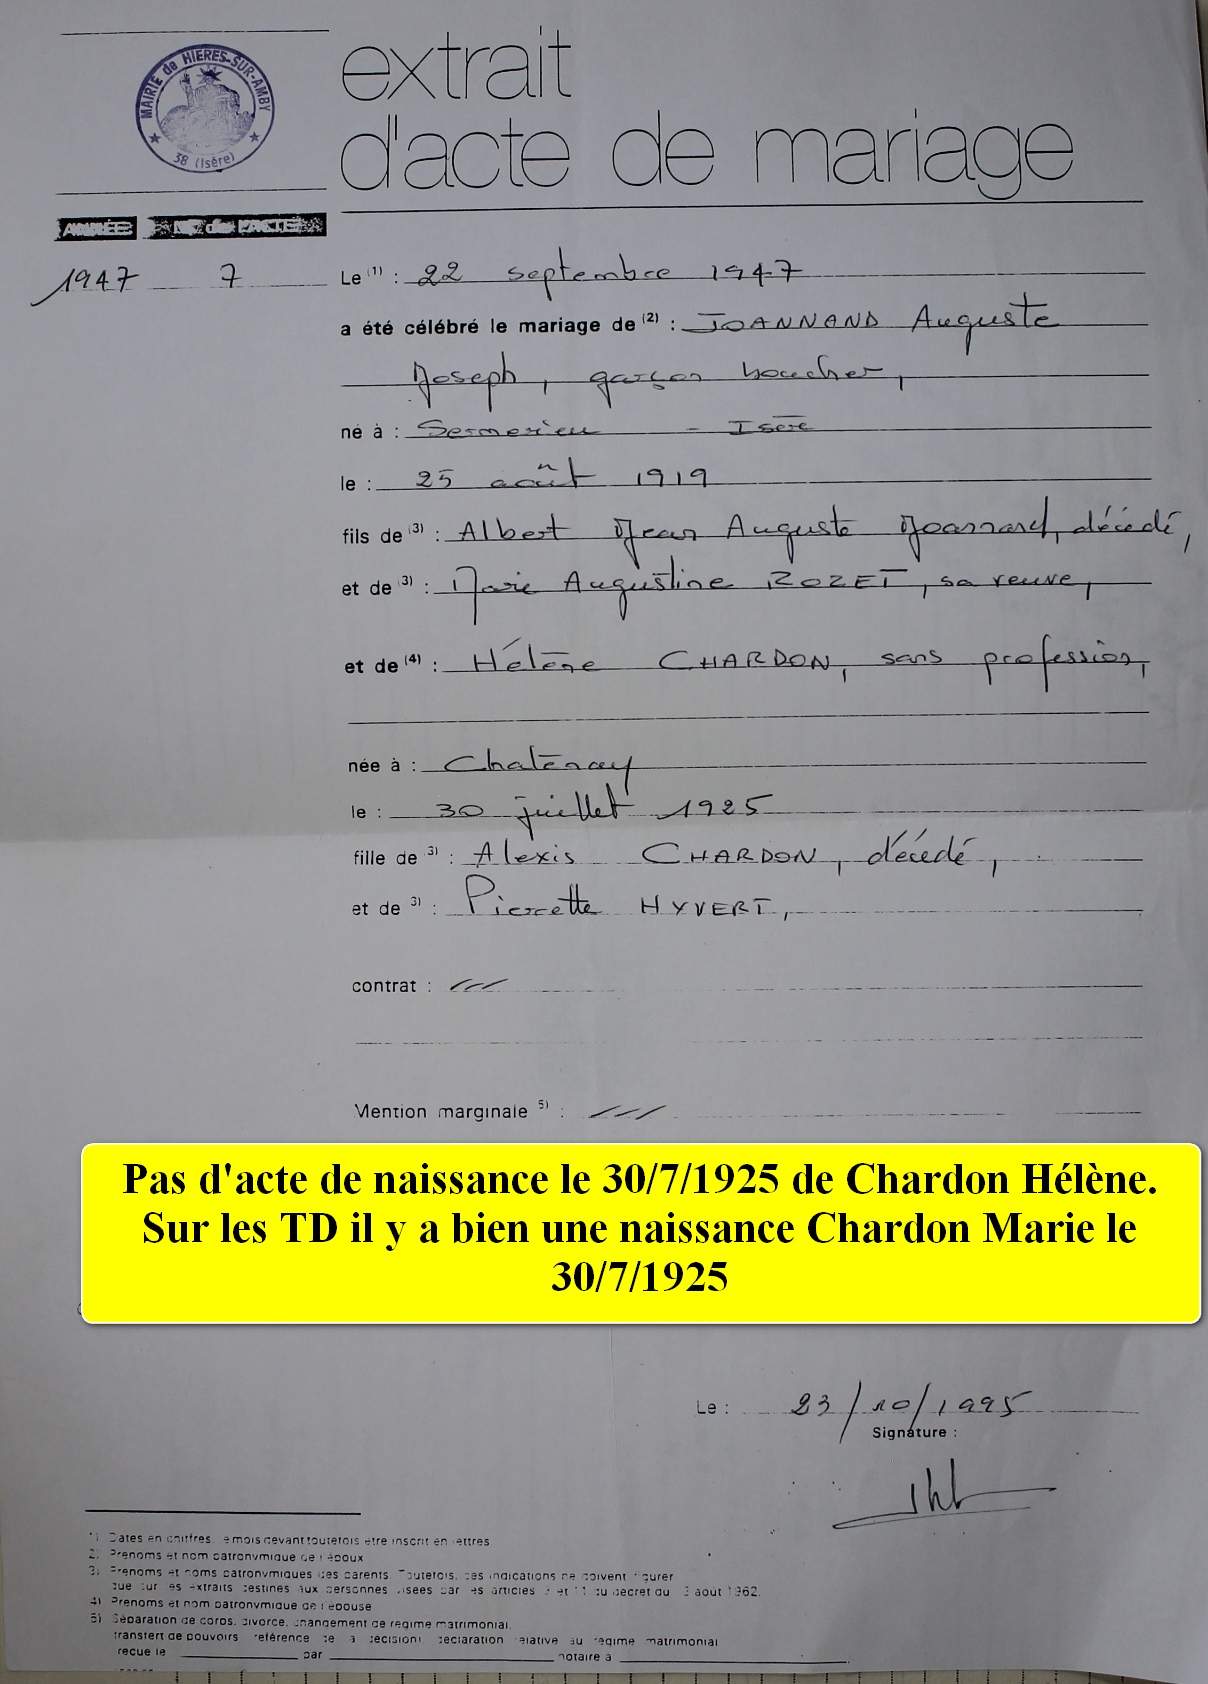 MAIRIE de HIERES-SUR-AMBY
38 (Isère)
extrait
d'acte de mariage
ANNÉE N° de L'ACTE
1947 7
Le (1) : 22 septembre 1947
a été célébré le mariage de (2) : JOANNAND Auguste
Joseph, garçon boucher,
né à : Sermerieu - Isère
le : 25 août 1919
fils de (3) : Albert Jean Auguste Joannand, décédé,
et de (3) : Marie Augustine ROZET, sa veuve,
et de (4) : Hélène CHARDON, sans profession,
née à : Chatenay
le : 30 juillet 1925
fille de 3) : Alexis CHARDON, décédé,
et de 3) : Pierrette HYVERT,
contrat :
Mention marginale 5) :
Pas d'acte de naissance le 30/7/1925 de Chardon Hélène.
Sur les TD il y a bien une naissance Chardon Marie le
30/7/1925
Le : 23/10/1995
Signature :
1) Dates en chiffres, le mois devant toutefois être inscrit en lettres
2) Prénoms et nom patronymique de l'époux
3) Prénoms et noms patronymiques des parents. Toutefois, ces indications ne doivent figurer
que sur les extraits destinés aux personnes visées par les articles 9 et 11 du décret du 3 août 1962.
4) Prénoms et nom patronymique de l'épouse
5) Séparation de corps, divorce, changement de régime matrimonial,
transfert de pouvoirs (référence de la décision) déclaration relative au régime matrimonial
reçue le par notaire à